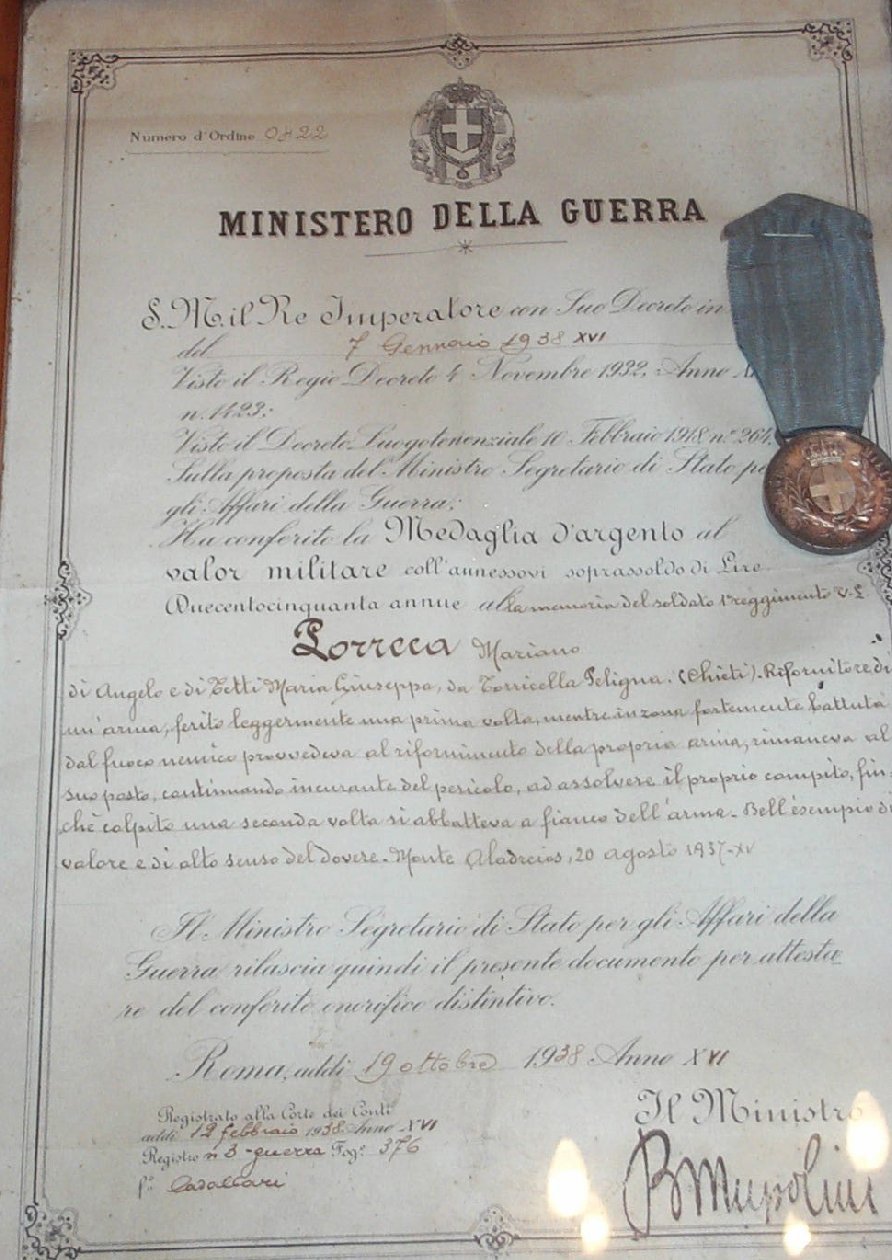 Numero d'Ordine 0422
MINISTERO DELLA GUERRA
S. M. il Re Imperatore con Suo Decreto in
del 7 Gennaio 1938 XVI
Visto il Regio Decreto 4 Novembre 1932, Anno
n. 1423;
Visto il Decreto Luogotenenziale 10 Febbraio 1918 n.° 264,
Sulla proposta del Ministro Segretario di Stato pe
gli Affari della Guerra;
Ha conferito la Medaglia d'argento al
valor militare coll'annessovi soprassoldo di Lire
Duecentocinquanta annue alla memoria del soldato 1° reggimento
Porreca Mariano
di Angelo e di Tetti Maria Giuseppa, da Torricella Peligna (Chieti). Rifornitore di
un'arma, ferito leggermente una prima volta, mentre in zona fortemente battuta
dal fuoco nemico provvedeva al rifornimento della propria arma, rimaneva al
suo posto, continuando incurante del pericolo, ad assolvere il proprio compito, fin
chè colpito una seconda volta si abbatteva a fianco dell'arma. Bell'esempio di
valore e di alto senso del dovere. Monte Aladreios, 20 agosto 1937-XV
Il Ministro Segretario di Stato per gli Affari della
Guerra rilascia quindi il presente documento per attesta
re del conferito onorifico distintivo.
Roma, addì 19 ottobre 1938 Anno XVI
Registrato alla Corte dei Conti
addì 12 febbraio 1938 Anno XVI
Registro n 3 - guerra Fog.° 376
f.° Casallari
Il Ministro
B Mussolini